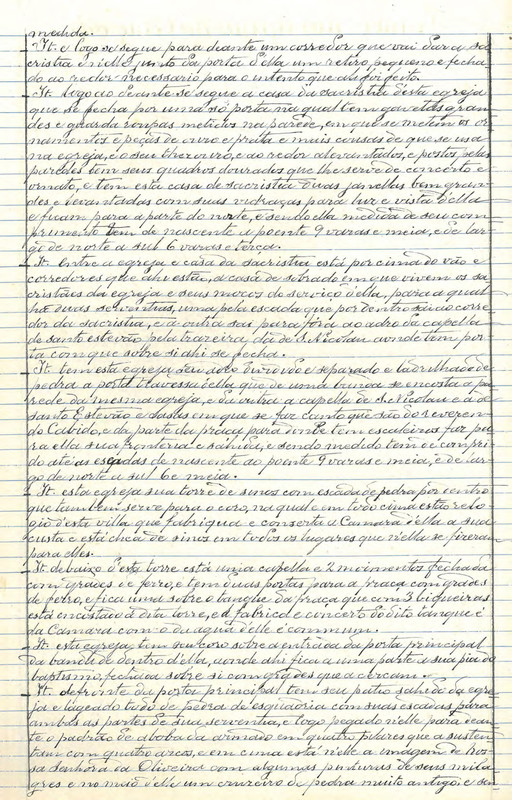 medida.
It. e logo se segue para diante um corredor que vai dar a sa-
cristia e n'elle, junto da porta d'ella um retiro pequeno e fecha-
do ao redor necessario para o intento que ahi foi feito.
It. logo ao deante se segue a casa da sacristia d'esta egreja
que se fecha por uma só porta na qual tem gavetas gran-
des e guarda roupas metidos na parede, em que se metem os or-
namentos e peças de ouro e prata e mais cousas de que se usa
na egreja, e o seu thezouro, e ao redor alevantados, e postos pelas
paredes tem seus quadros dourados que lhe serve de concerto e
ornato, e tem esta casa de sacristia duas janellas bem gran-
des e levantadas com suas vidraças para luz e vista d'ella
e ficam para a parte do norte, e sendo ella medida de seu com-
primento tem de nascente a poente 9 varas e meia, e de lar-
go de norte a sul 6 varas e terça.
It. entre a egreja e casa da sacristia está por cima do vão e
corredores que ahi está, a casa de sobrado em que vivem os sa-
cristães da egreja e seus moços do serviço d'ella, para a qual
ha duas serventias, uma pela escada que por dentro sai ao corre-
dor da sacristia, e a outra sai para fóra ao adro da capella
de santo estevão pela trazeira, da de S. Nicolau aonde tem por-
ta com que sobre si ahi se fecha.
It. tem esta egreja seu adro dividido e separado e ladrilhado de
pedra a porta travessa d'ella que de uma banda se encosta a pa-
rede da mesma egreja, e da outra a capella de S. Nicolau e á de
Santo Estevão e casas em que se faz canto que são do reveren-
do Cabido, e da parte da praça para onde tem escaleiras faz pa-
ra ella sua fronteria e sahida, e sendo medido tem de compri-
do até as escadas de nascente ao poente 9 varas e meia, e de lar-
go de norte a sul 6 e meia.
It. esta egreja sua torre de sinos com escada de pedra por dentro
que tambem serve para o coro, na qual em todo cima está relo-
gio d'esta villa que fabriqua e conserta a Camara d'ella a sua
custa e está chea de sinos em todos os lugares que n'ella se fizeram
para elles.
It. debaixo d'esta torre está uma capella e 2 moimentos fechada
com grades de ferro, e tem duas portas para a praça com grades
de ferro, e fica uma sobre o tanque da praça que com 3 biqueiras
está encostado á dita torre, e a fabrica e concerto do dito tanque é
da Camara com o da agua d'elle é commum.
It. esta egreja tem seu coro sobre a entrada da porta principal
da banda de dentro d'ella, aonde ahi fica a uma parte a sua pia do
baptismo, fechada sobre si com grades que a cercam.
It. defronte da porta principal tem seu patio sahido da egre-
ja e lageado tudo de pedra de esquadria com suas escadas para
ambas as partes de sua serventia, e logo pegado n'elle para dean-
te o padrão de abobada armado em quatro pilares que a susten-
tam com quatro arcos, e em cima está n'elle a imagem de Nos-
sa Senhora da Oliveira com algumas pinturas de seus mila-
gres e no meio d'elle um cruzeiro de pedra muito antigo, e seu